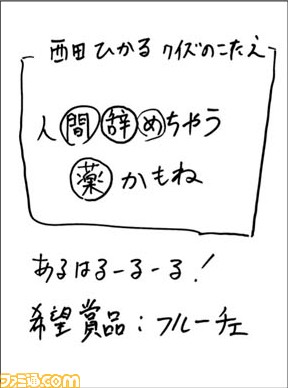 西田ひかるクイズのこたえ
人間辞めちゃう
薬かもね
あるはるーるーる!
希望賞品:フルーチェ
ファミ通.com